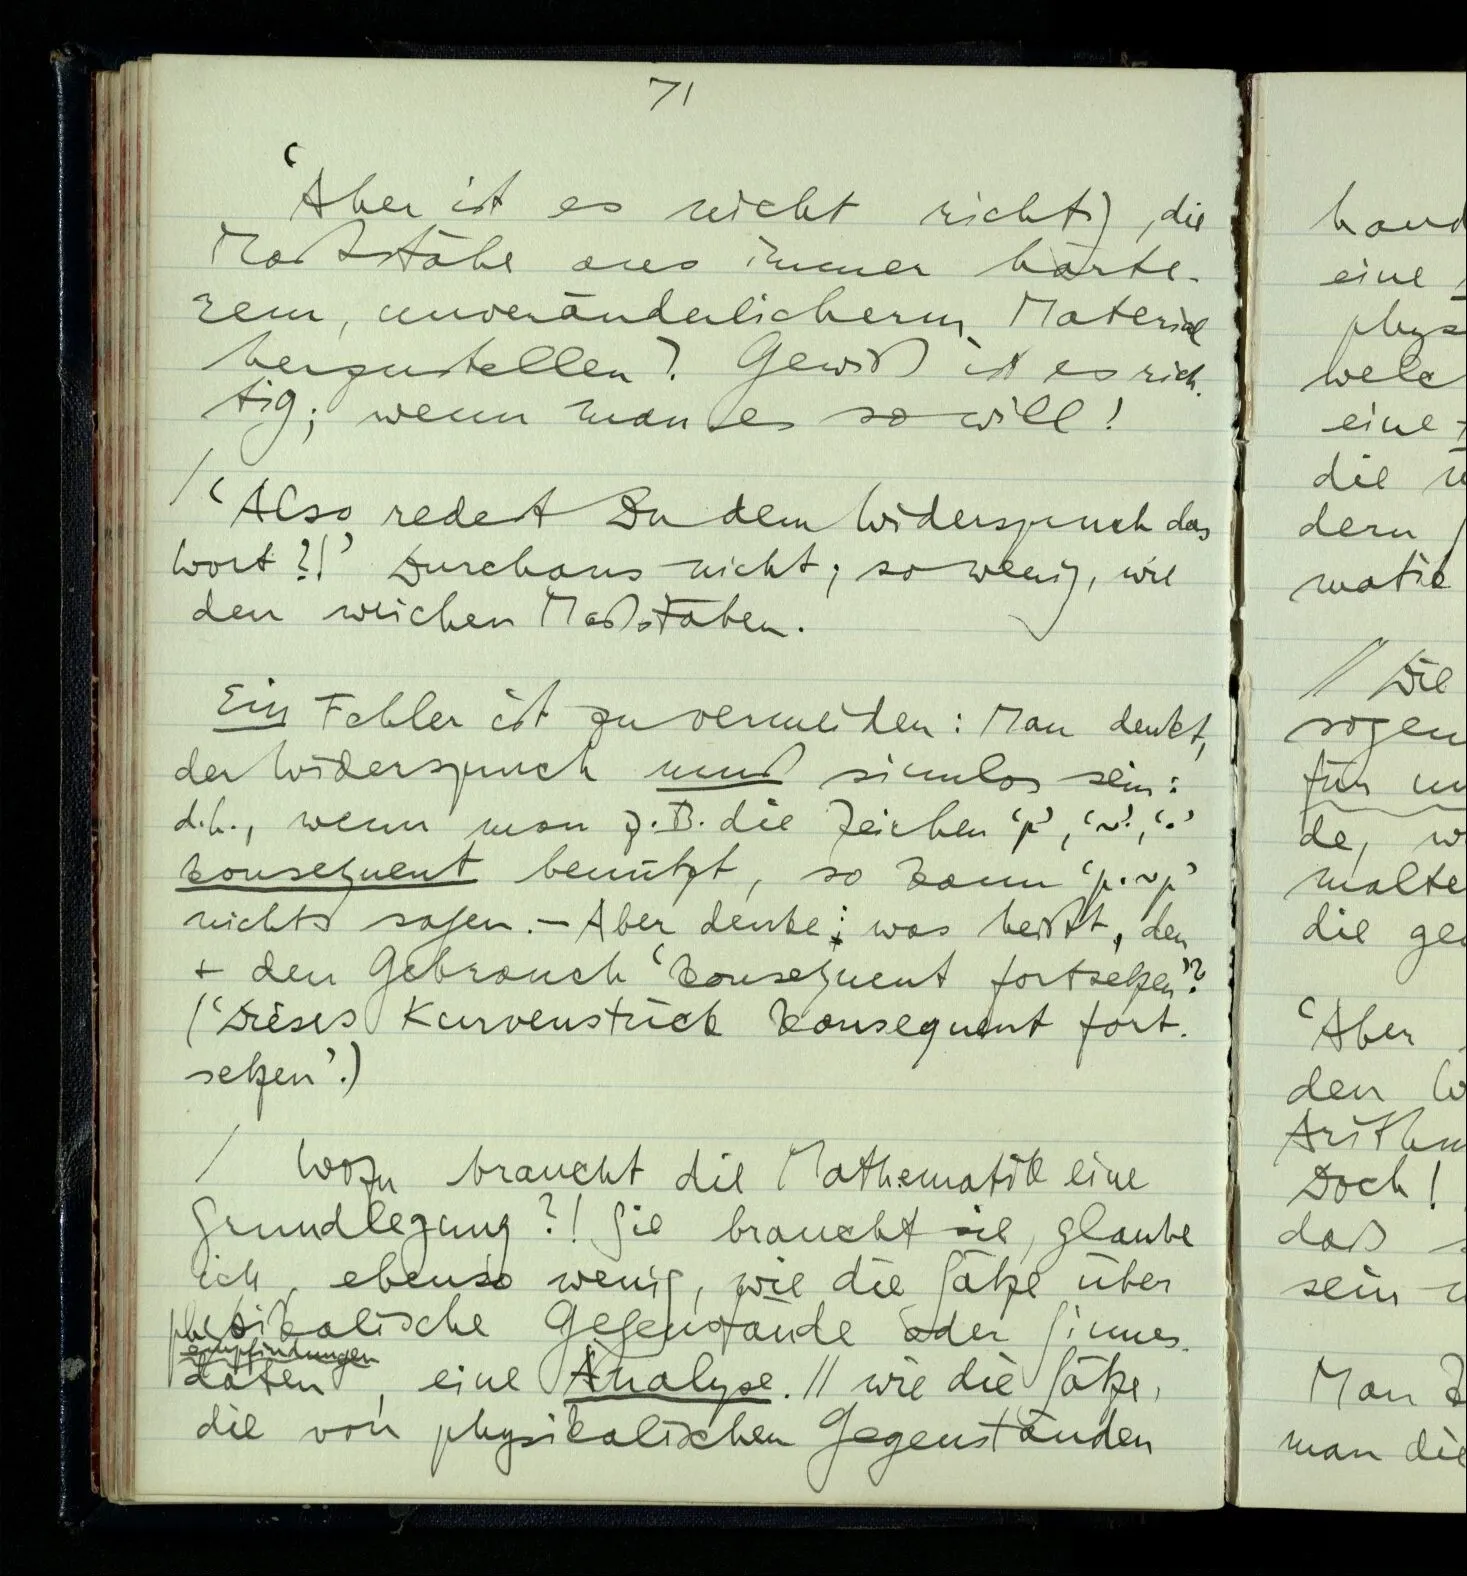 71
‘Aber ist es nicht richtig, die
Maßstäbe aus immer härte-
rem, unveränderlicherem Material
herzustellen? Gewiß ist es rich-
tig; wenn man es so will!
/ ‘Also redest Du dem Widerspruch das
Wort?!’ Durchaus nicht; so wenig, wie
den weichen Maßstäben.
Ein Fehler ist zu vermeiden: Man denkt,
der Widerspruch muß sinnlos sein:
d.h., wenn man z.B. die Zeichen ‘p’, ‘~’, ‘.’
konsequent benützt, so kann ‘p.~p’
nichts sagen. – Aber denke: was heißt, den
+ den Gebrauch ‘konsequent fortsetzen’?
(‘Dieses Kurvenstück konsequent fort-
setzen’.)
/ Wozu braucht die Mathematik eine
Grundlegung?! Sie braucht sie, glaube
ich, ebenso wenig, wie die Sätze über
physikalische Gegenstände oder Sinnes-
empfindungen
daten, eine Analyse. // wie die Sätze,
die von physikalischen Gegenständen
hand
eine
phys
welc
eine
die
dern
matik
// Die
sogen
für un
de, w
malte
die ge
‘Aber
den W
Arithm
Doch!
daß s
sein
Man k
man die